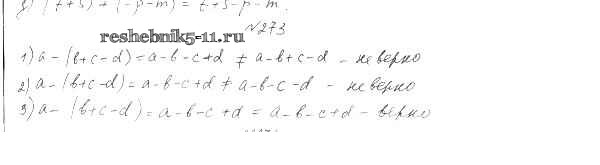 д) (t+s) + (-p-m) = t+s-p-m.
№273
reshebnik5-11.ru
1) a-(b+c-d)=a-b-c+d ≠ a-b+c-d - не верно
2) a-(b+c-d)=a-b-c+d ≠ a-b-c-d - не верно
3) a-(b+c-d)=a-b-c+d = a-b-c+d - верно